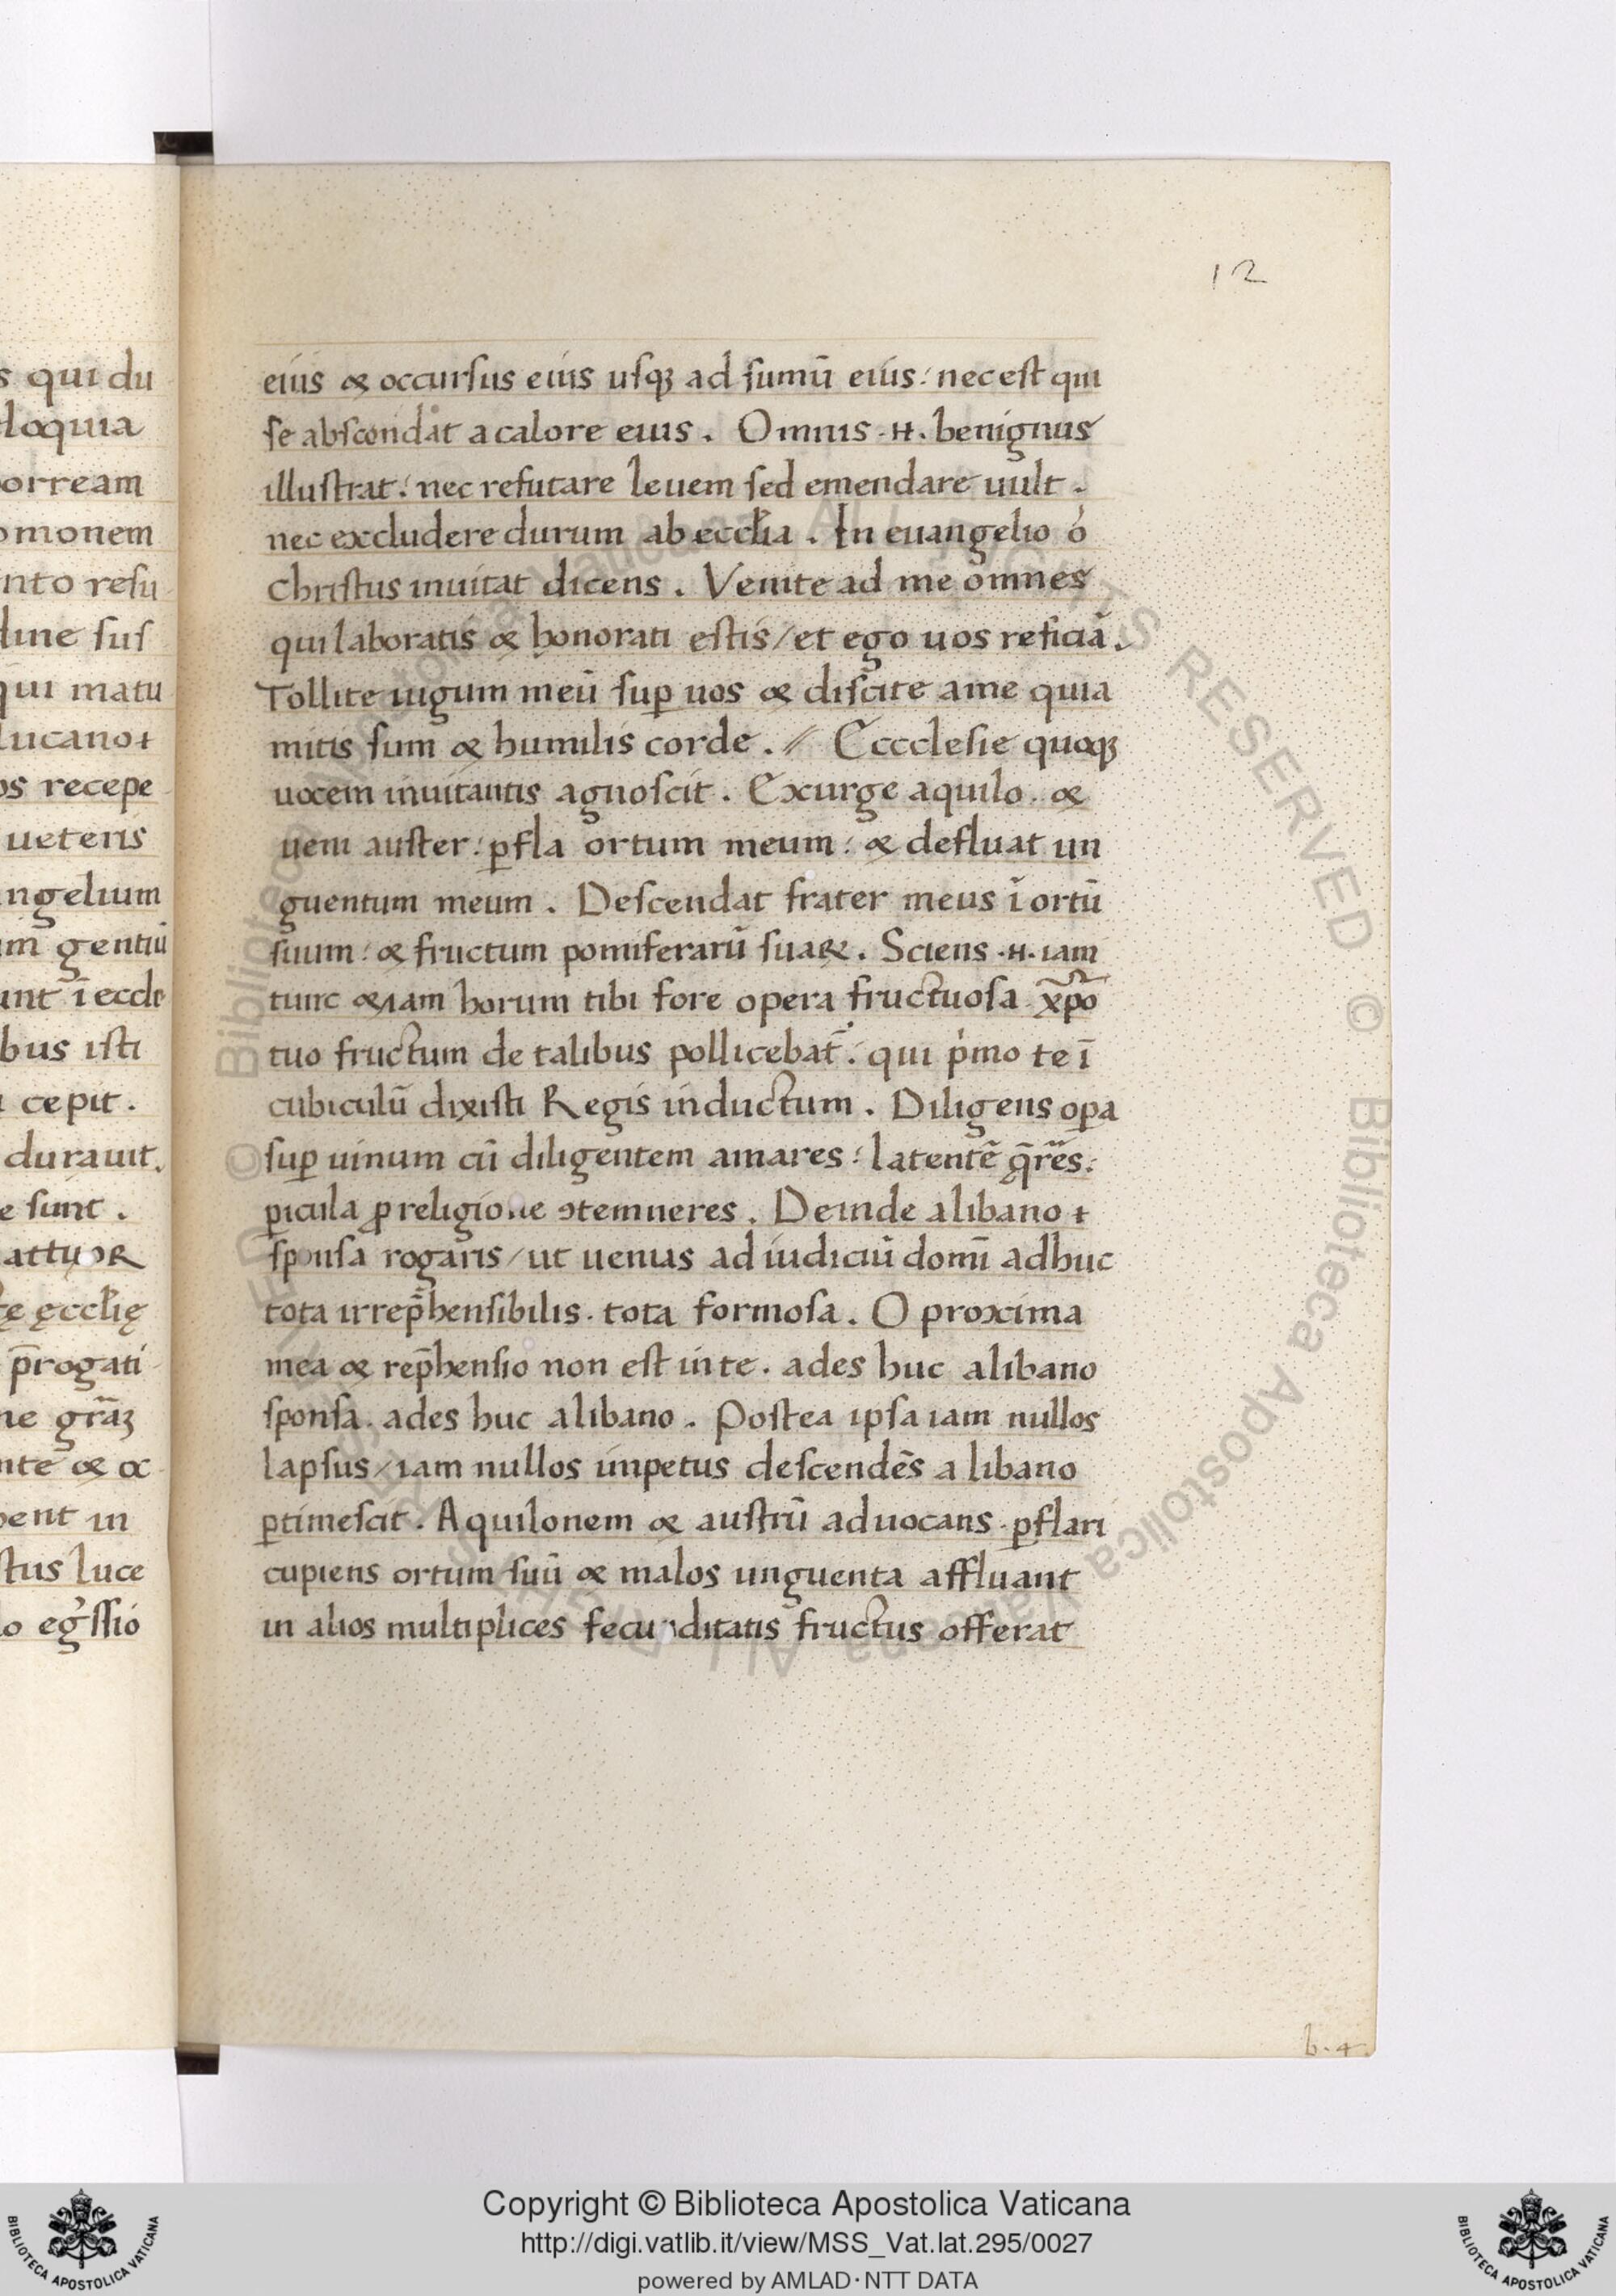 s qui du
loquia
orream
omonem
nto resu
dine sus
qui matu
lucano⁊
os recepe
ueteris
ngelium
im gentiū
unt ī eccle
bus isti
cepit.
durauit.
e sunt.
attuoꝛ
ecclię
p̄rogati
ne
nte & ex
bent in
stus luce
lo
12
eius & occursus eius usqꝫ ad sumū eius: nec est qui
se abscondat a calore eius. Omnis .H. benignus
illustrat: nec refutare leuem sed emendare uult.
nec excludere durum ab ecclīa. In euangelio ò
Christus inuitat dicens. Venite ad me omnes
qui laboratis & honorati estis/ et ego uos reficiā.
Tollite iugum meū suꝑ uos & discite ame quia
mitis sum & humilis corde. // Eccclesie quoqꝫ
uocem inuitantis agnoscit. Exurge aquilo. &
ueni auster: ꝑfla ortum meum: & defluat un
guentum meum. Descendat frater meus ī ortū
suum: & fructum pomiferarū suaꝝ. Sciens .H. iam
tunc &iam horum tibi fore opera fructuosa xp̄o
tuo fructum de talibus pollicebat̄: qui pͥmo te ī
cubiculū dixisti Regis inductum. Diligens oꝑa
suꝑ uinum cū diligentem amares: latentē q̄reres:
ꝑicula ꝓ religione ↄtemneres. Deinde alibano ⁊
sponsa rogaris/ ut uenias ad iudiciū domī adhuc
tota irrep̄hensibilis. tota formosa. O proxima
mea & rep̄hensio non est in te. ades huc alibano
sponsa. ades huc alibano. Postea ipsa iam nullos
lapsus/ iam nullos impetus descendēs a libano
ꝑtimescit. Aquilonem & austrū aduocans. ꝑflari
cupiens ortum suū & malos unguenta affluant
in alios multiplices fecunditatis fructus offerat
b.4.
© Biblioteca Apostolica Vaticana ALL RIGHTS RESERVED © Biblioteca Apostolica Vaticana ALL RIGHTS RESERVED
Copyright © Biblioteca Apostolica Vaticana
http://digi.vatlib.it/view/MSS_Vat.lat.295/0027
powered by AMLAD·NTT DATA
BIBLIOTECA APOSTOLICA VATICANA
BIBLIOTECA APOSTOLICA VATICANA